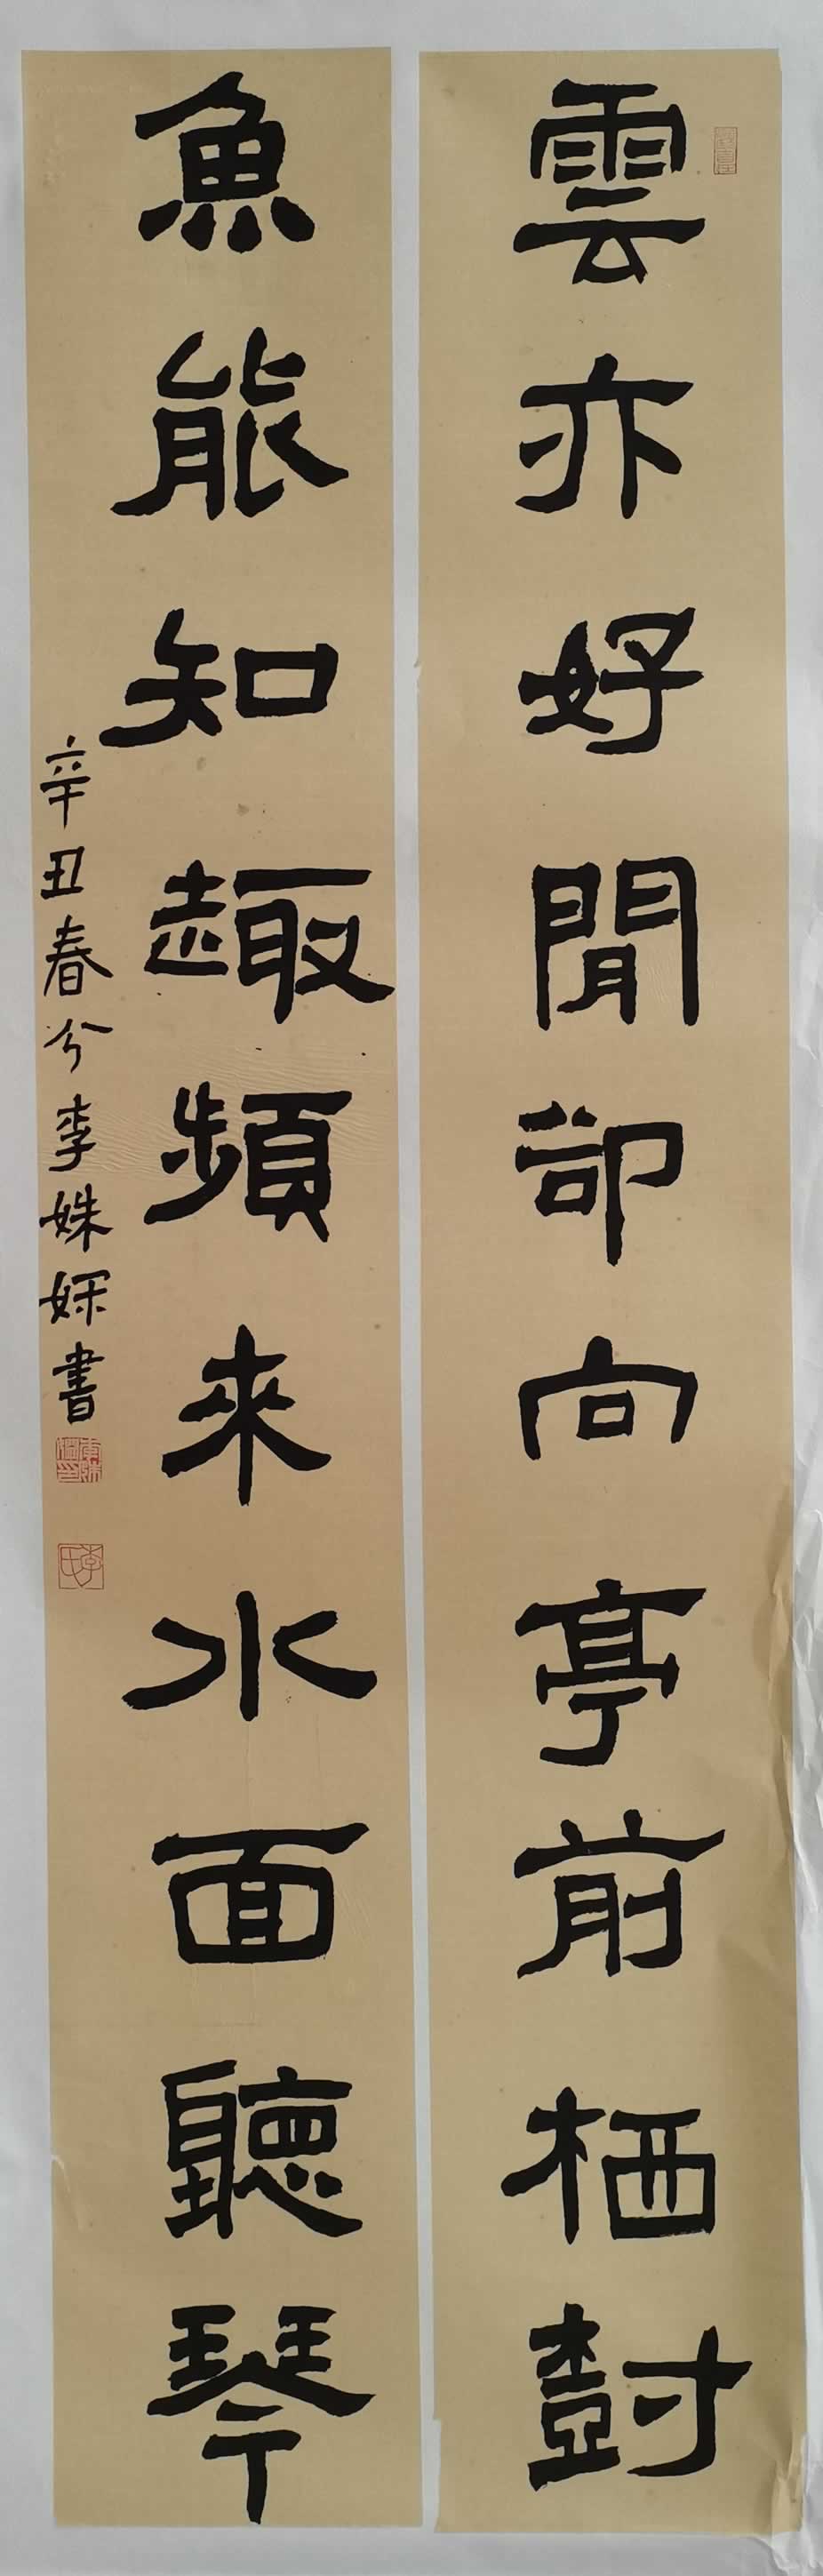 雲亦好閒卻向亭前栖樹
魚能知趣頻來水面聽琴
辛丑春兮李姝婇書
李氏